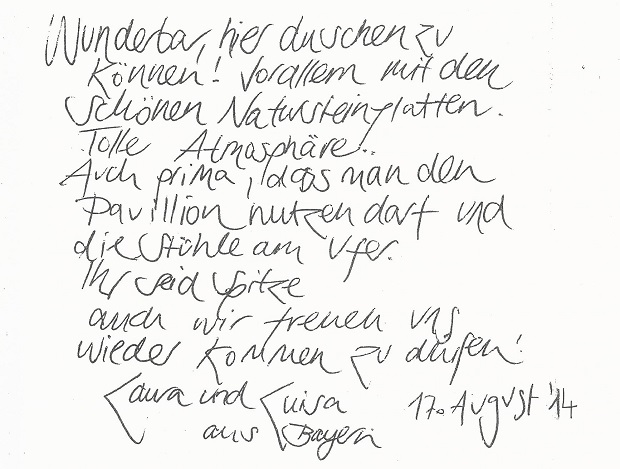 Wunderbar, hier duschen zu
können! Vorallem mit den
schönen Natursteinplatten.
Tolle Atmosphäre..
Auch prima, dass man den
Pavillion nutzen darf und
die Stühle am Ufer.
Ihr seid spitze
auch wir freuen uns
wieder kommen zu dürfen!
Laura und Luisa 17. August '14
aus Bayern